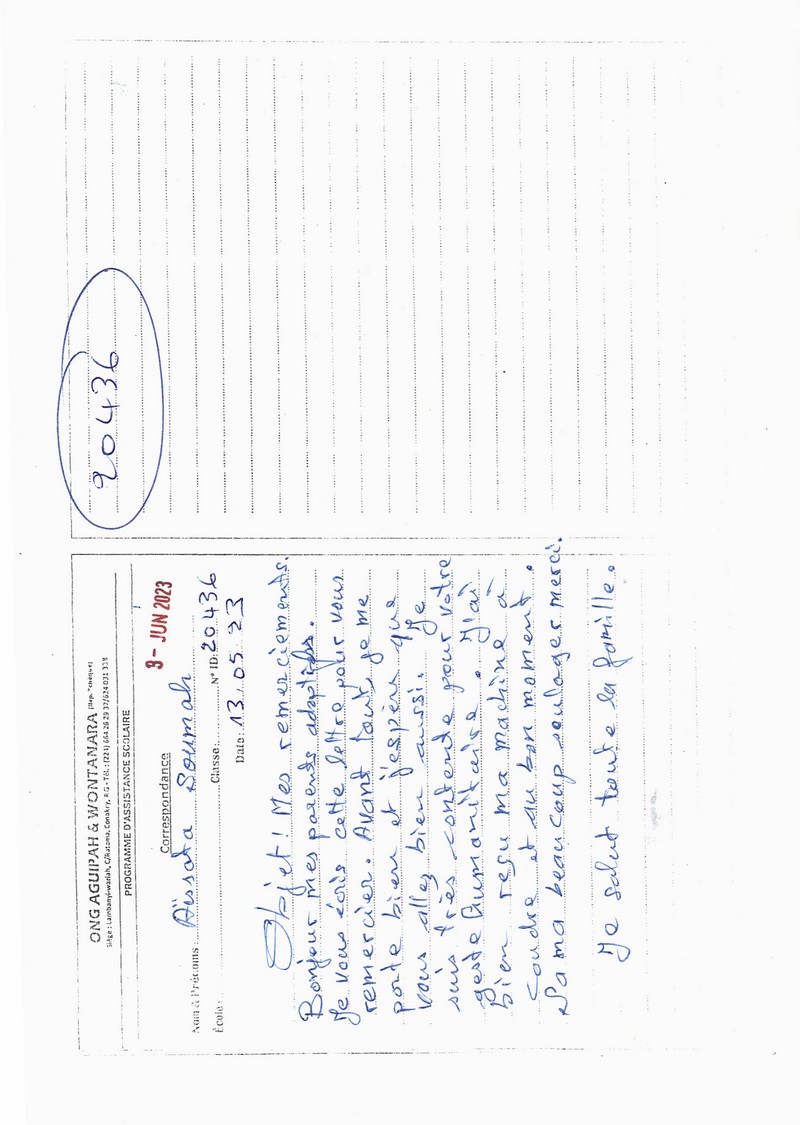 ONG AGUIPAH & WONTANARA
PROGRAMME D'ASSISTANCE SCOLAIRE
Correspondance
3 - JUN 2023
Nom & Prénoms : Aïssata Soumah
École : Classe : N° ID: 20436
Date: 13.05.23
Objet! Mes remerciements.
Bonjour mes parents adoptifs.
Je vous écris cette lettre pour vous
remercier. Avant tout, je me
porte bien et j'espère que
vous allez bien aussi. Je
suis très contente pour votre
geste humanitaire. J'ai
bien reçu ma machine à
coudre et au bon moment.
Sa ma beaucoup soulager merci.
Je salut toute la famille.
20436